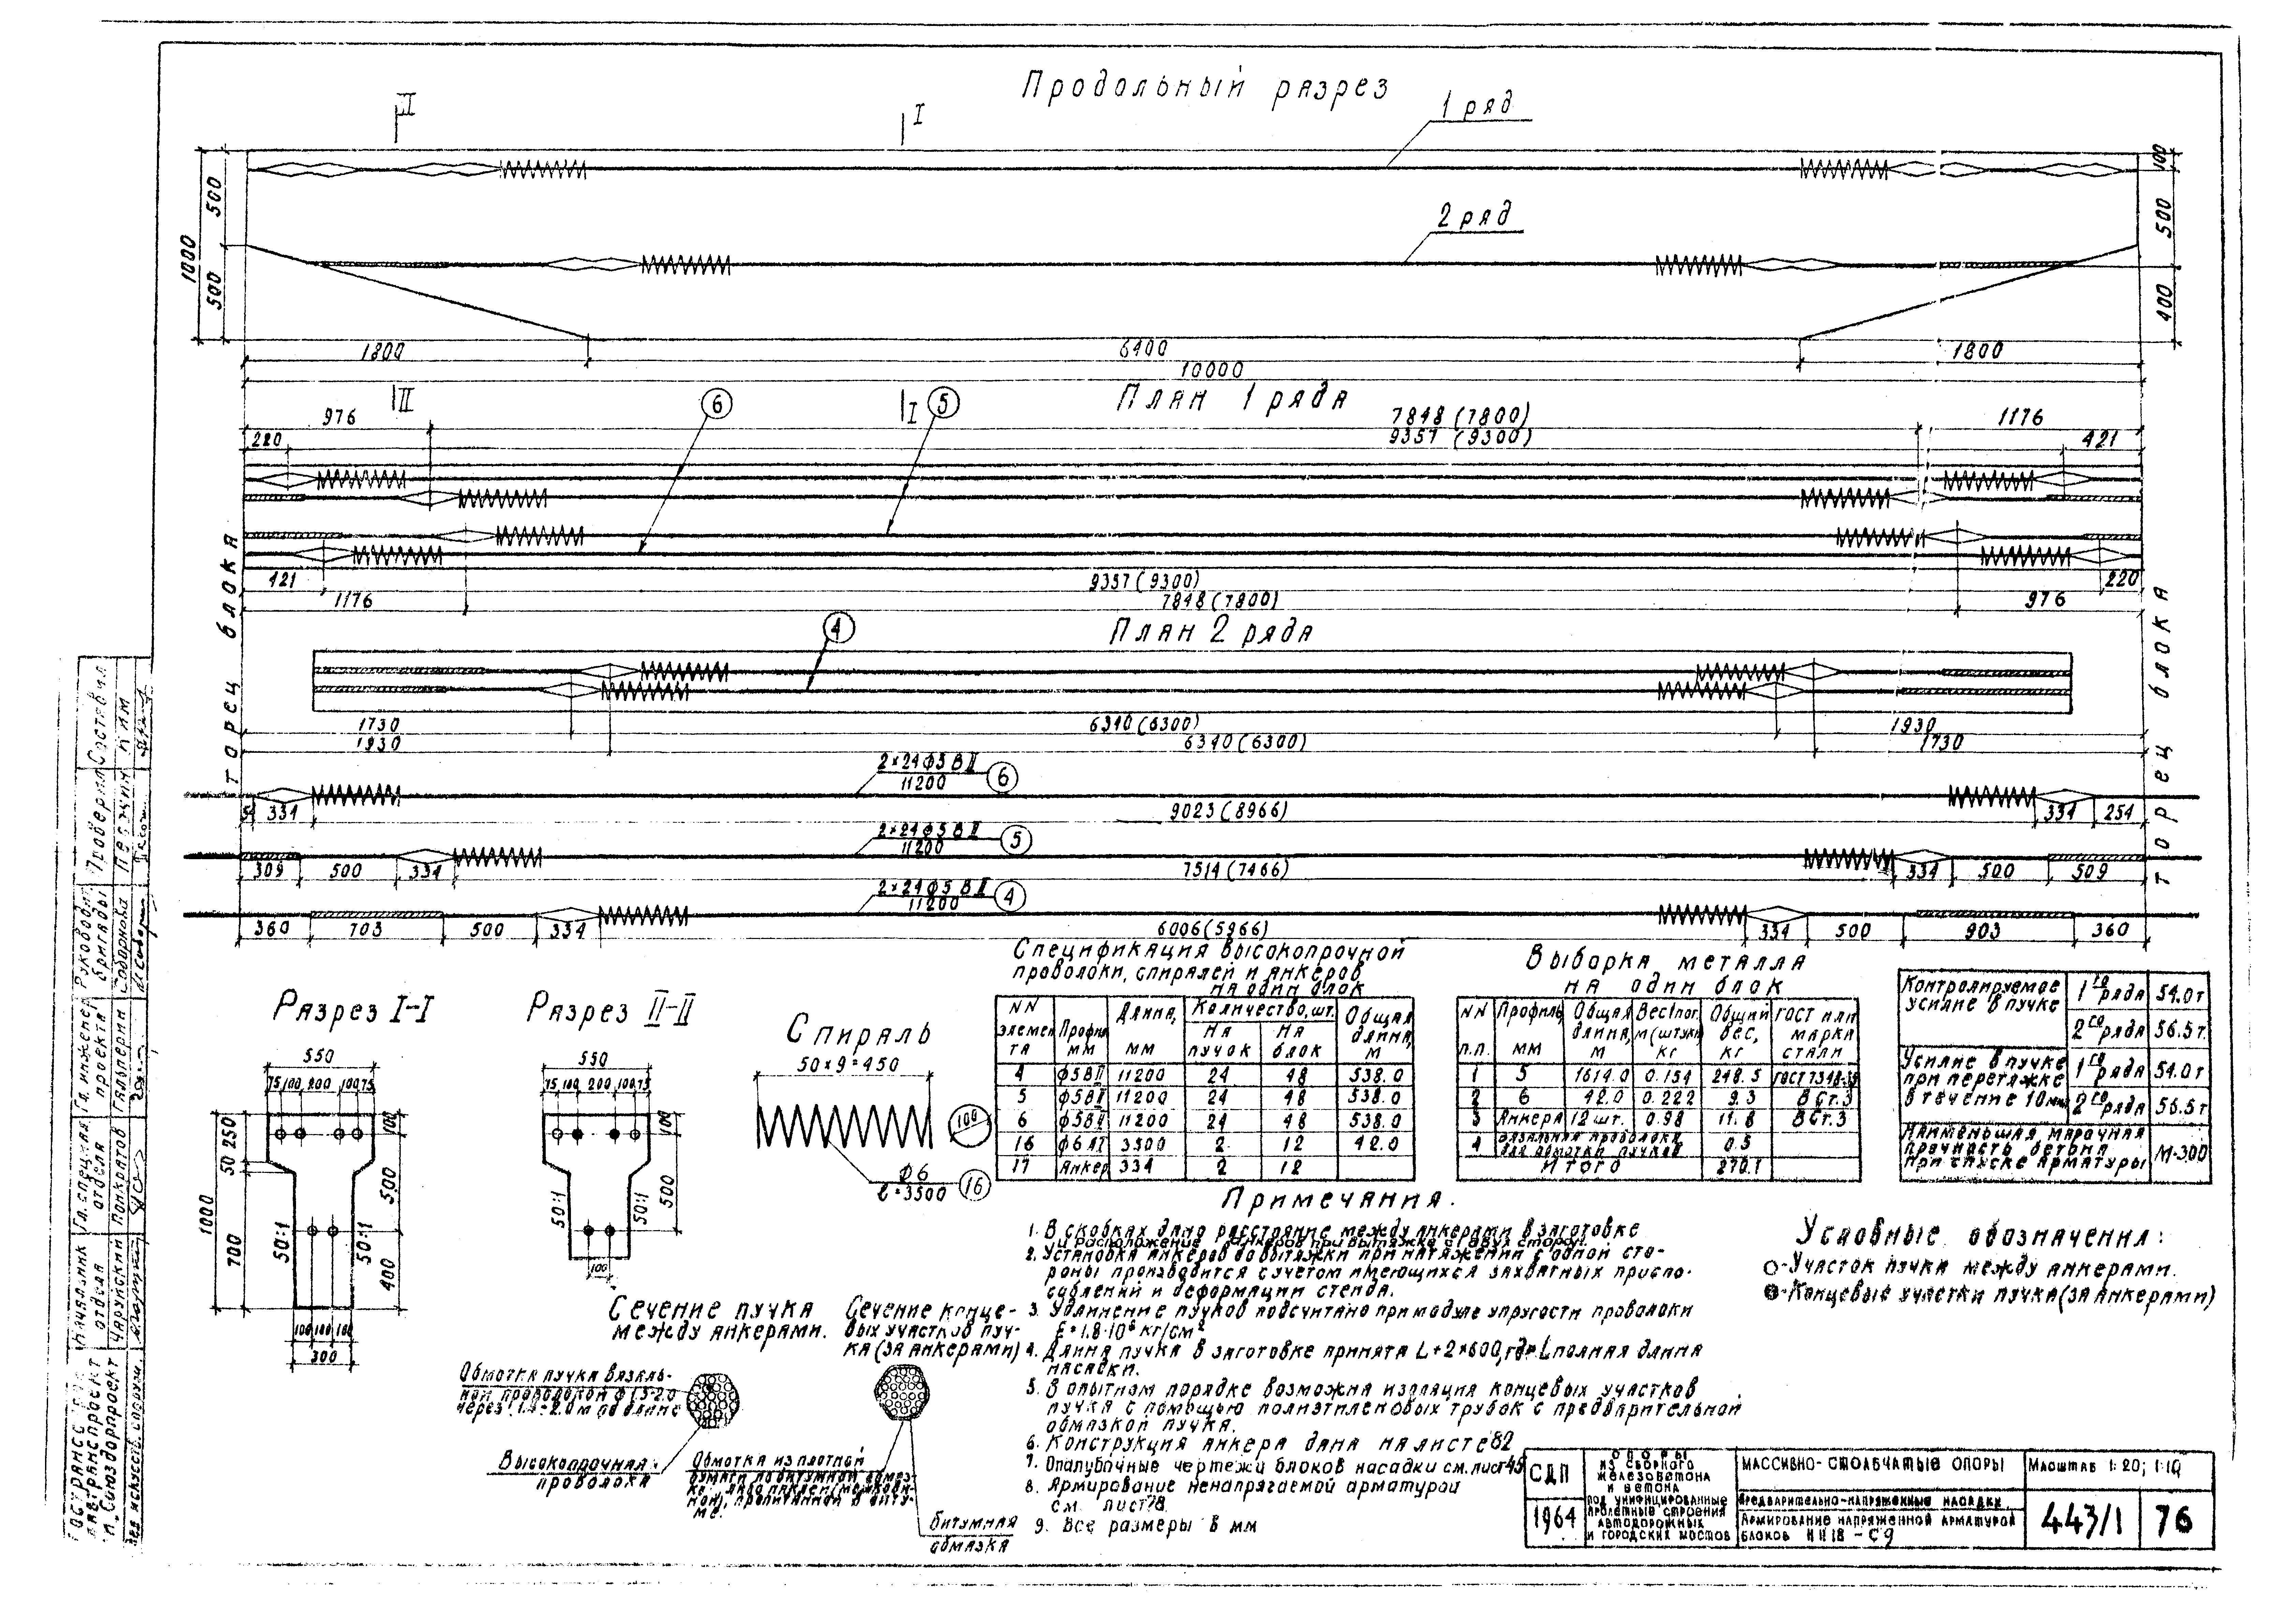 Продольный разрез
II
I
1 ряд
2 ряд
500
500
1000
100
500
400
1800
6400
1800
10000
План 1 ряда
II
I
6
5
976
7848 (7800)
1176
220
9357 (9300)
421
421
9357 (9300)
220
1176
7848 (7800)
976
Торец блока
Торец блока
План 2 ряда
4
1730
6340 (6300)
1930
1930
6340 (6300)
1730
2×24ф5 В II
11200
6
54
334
9023 (8966)
334
254
2×24ф5 В II
11200
5
309
500
334
7514 (7466)
334
500
509
2×24ф5 В II
11200
4
360
703
500
334
6006 (5966)
334
500
903
360
Разрез I-I
550
75 100 200 100 75
250
50
1000
700
50:1
50:1
100
500
400
100 100 100
300
Разрез II-II
550
75 100 200 100 75
100
500
50:1
50:1
100
Спираль
50×9=450
100
ф6
ℓ=3500
16
Спецификация высокопрочной
проволоки, спиралей и анкеров
на один блок
NN элемента | Профиль мм | Длина, мм | Количество, шт. | Общая длина, м
На пучок | На блок
4 ф5ВII 11200 24 48 538.0
5 ф5ВII 11200 24 48 538.0
6 ф5ВII 11200 24 48 538.0
16 ф6АI 3500 2 12 42.0
17 Анкер 334 2 12
Выборка металла
на один блок
NN п.п. | Профиль, мм | Общая длина, м | Вес 1 пог. м (штуки) кг | Общий вес, кг | ГОСТ или марка стали
1 5 1614.0 0.154 248.5 ГОСТ 7348-55
2 6 42.0 0.222 9.3 В Ст.3
3 Анкера 12 шт. 0.98 11.8 В Ст.3
4 Вязальная проволока для обмотки пучков 0.5
Итого 270.1
Контролируемое усилие в пучке 1го ряда 54.0 т
2го ряда 56.5 т.
Усилие в пучке при перетяжке в течение 10 мин 1го ряда 54.0 т
2го ряда 56.5 т
Наименьшая марочная прочность бетона при спуске арматуры М-300
Примечания.
1. В скобках дано расстояние между анкерами в заготовке
и расположение анкеров при вытяжке с двух сторон.
2. Установка анкеров до вытяжки при натяжении с одной сто-
роны производится с учетом имеющихся захватных приспо-
соблений и деформации стенда.
3. Удлинение пучков подсчитано при модуле упругости проволоки
E=1.8·10⁶ кг/см²
4. Длина пучка в заготовке принята L+2×600, где L полная длина
насадки.
5. В опытном порядке возможна изоляция концевых участков
пучка с помощью полиэтиленовых трубок с предварительной
обмазкой пучка.
6. Конструкция анкера дана на листе 82
7. Опалубочные чертежи блоков насадки см. лист 45
8. Армирование ненапрягаемой арматурой
см. лист 78.
9. Все размеры в мм
Условные обозначения:
-Участок пучка между анкерами.
-Концевые участки пучка (за анкерами)
Сечение пучка
между анкерами.
Обмотка пучка вязаль-
ной проволокой ф1.5-2.0
через 1.5-2.0 м по длине
Высокопрочная
проволока
Сечение конце-
вых участков пуч-
ка (за анкерами)
Обмотка из плотной
бумаги по битумной обмаз-
ке либо паклей (мешкови-
ной), пропитанной в биту-
ме.
битумная
обмазка
СДП
1964
Опоры
из сборного
железобетона
и бетона
под унифицированные
пролетные строения
автодорожных
и городских мостов
Массивно-столбчатые опоры
Предварительно-напряженные насадки.
Армирование напряженной арматурой
блоков
Масштаб 1:20; 1:10
443/1
76
Составил
Ким
Проверил
Песчин
Руководит. бригады
Гл. инженер проекта
Гальперин
Гл. специал. отдела
Панкратов
Начальник отдела
Чаруйский
Главтранспроект
Союздорпроект